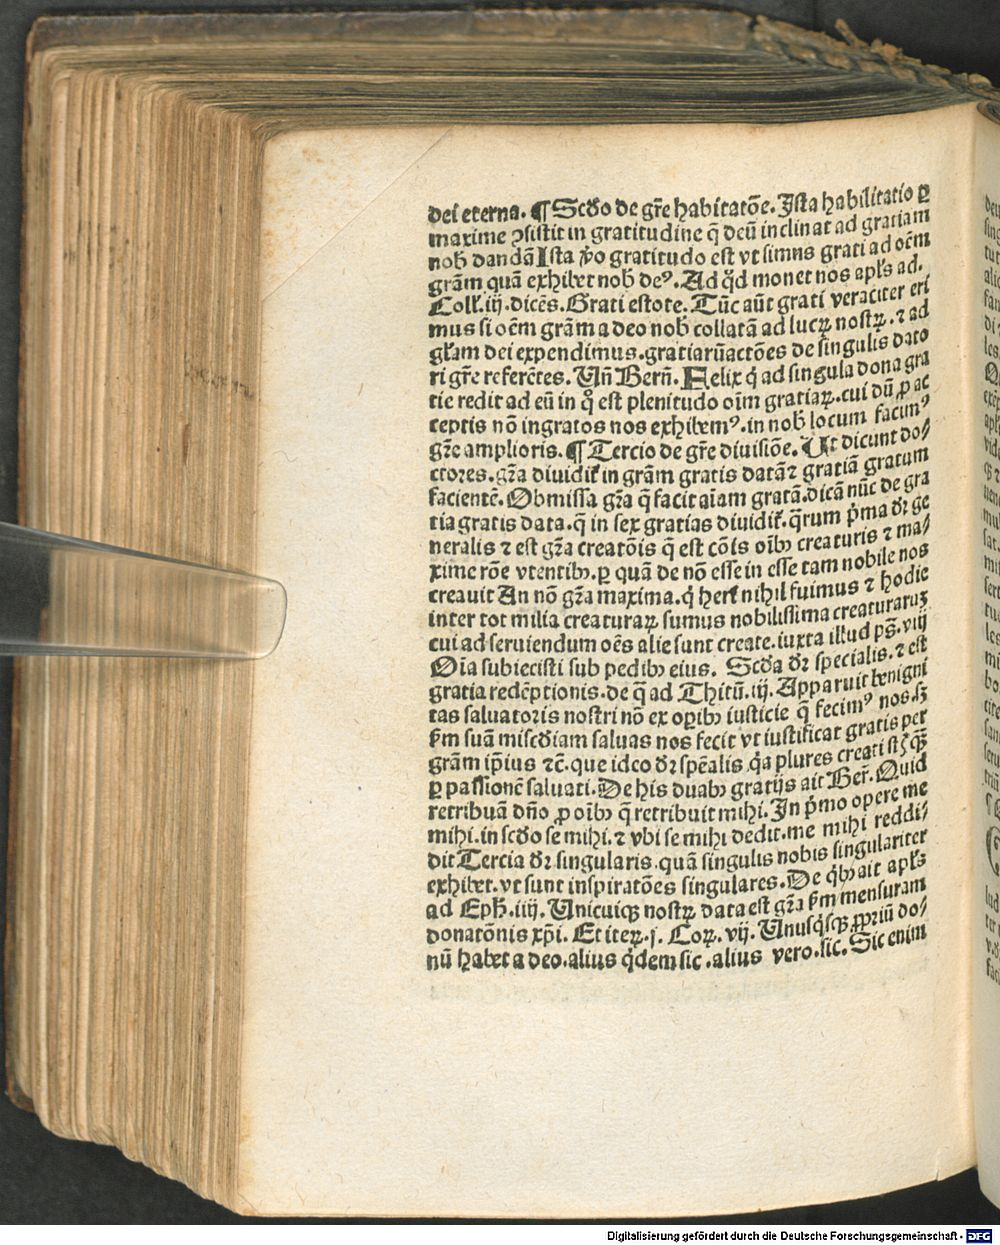 dei eterna. ¶ Scďo de gr̄e habitatōe. Ista habilitatio ꝑ
maxime ꝯsistit in gratitudine q̄ deū inclinat ad gratiam
nob̄ dandā Ista v̊o gratitudo est vt simus grati ad oēm
grām quā exhibet nob̄ deꝰ. Ad qd̓ monet nos apl̄s ad.
Coll̄. iij. dicēs. Grati estote. Tūc aūt grati veraciter eri
mus si oēm grām a deo nob̄ collatā ad lucꝝ nostꝝ. ⁊ ad
gl̄am dei expendimus. gratiarūactōes de singulis dato
ri gr̄e referētes. Un̄ Bern̄. Felix q̓ ad singula dona gra
tie redit ad eū in q̊ est plenitudo oīm gratiaꝝ. cui dū ꝓ ac
ceptis nō ingratos nos exhibemꝰ. in nob̄ locum facunꝰ
gr̄e amplioris. ¶ Tercio de gr̄e diuisiōe. Ut dicunt do⸗
ctores. gr̄a diuidit᷑ in grām gratis datā ⁊ gratiā gratum
facientē. Obmissa gr̄a q̄ facit aīam gratā. dicā nūc de gra
tia gratis data. q̄ in sex gratias diuidit᷑. q̄rum p̓ma dr̄ ge
neralis ⁊ est gr̄a creatōis q̄ est cōis oībꝫ creaturis ⁊ ma⸗
xime rōe vtentibꝫ. ꝑ quā de nō esse in esse tam nobile nos
creauit An nō gr̄a maxima. q̓ heri nihil fuimus ⁊ hodie
inter tot milia creaturaꝝ sumus nobilissima creaturaruꝫ
cui ad seruiendum oēs alie sunt create. iuxta illud ps̄. viij
Oīa subiecisti sub pedibꝫ eius. Scďa dr̄ specialis. ⁊ est
gratia redēptionis. de q̄ ad Thitū. iij. Apparuit benigni
tas saluatoris nostri nō ex oꝑibꝫ iusticie q̄ fecimꝰ nos. sꝫ
ẜm suā misc̄diam saluas nos fecit vt iustificat gratis per
grām ip̄ius ⁊c̄. que ideo dr̄ spēalis q̓a plures creati st̄ qꝫ
ꝑ passionē saluati. De his duabꝫ gratijs ait Ber̄. Quid
retribuā dn̄o ꝓ oībꝫ q̄ retribuit mihi. In p̓mo opere me
mihi. in scďo se mihi. ⁊ vbi se mihi dedit. me mihi reddi⸗
dit Tercia dr̄ singularis. quā singulis nobis singulariter
exhibet. vt sunt inspiratōes singulares. De q̓bꝫ ait apl̄s
ad Eph̄. iiij. Unicuiqꝫ nostꝝ data est gr̄a ẜm mensuram
donatōnis xp̄i. Et iteꝝ. j. Coꝝ. vij. Unusq̓sqꝫ ꝓpriū do⸗
nū habet a deo. alius q̓dem sic. alius vero. sic. Sic enim
Digitalisierung gefördert durch die Deutsche Forschungsgemeinschaft - DFG